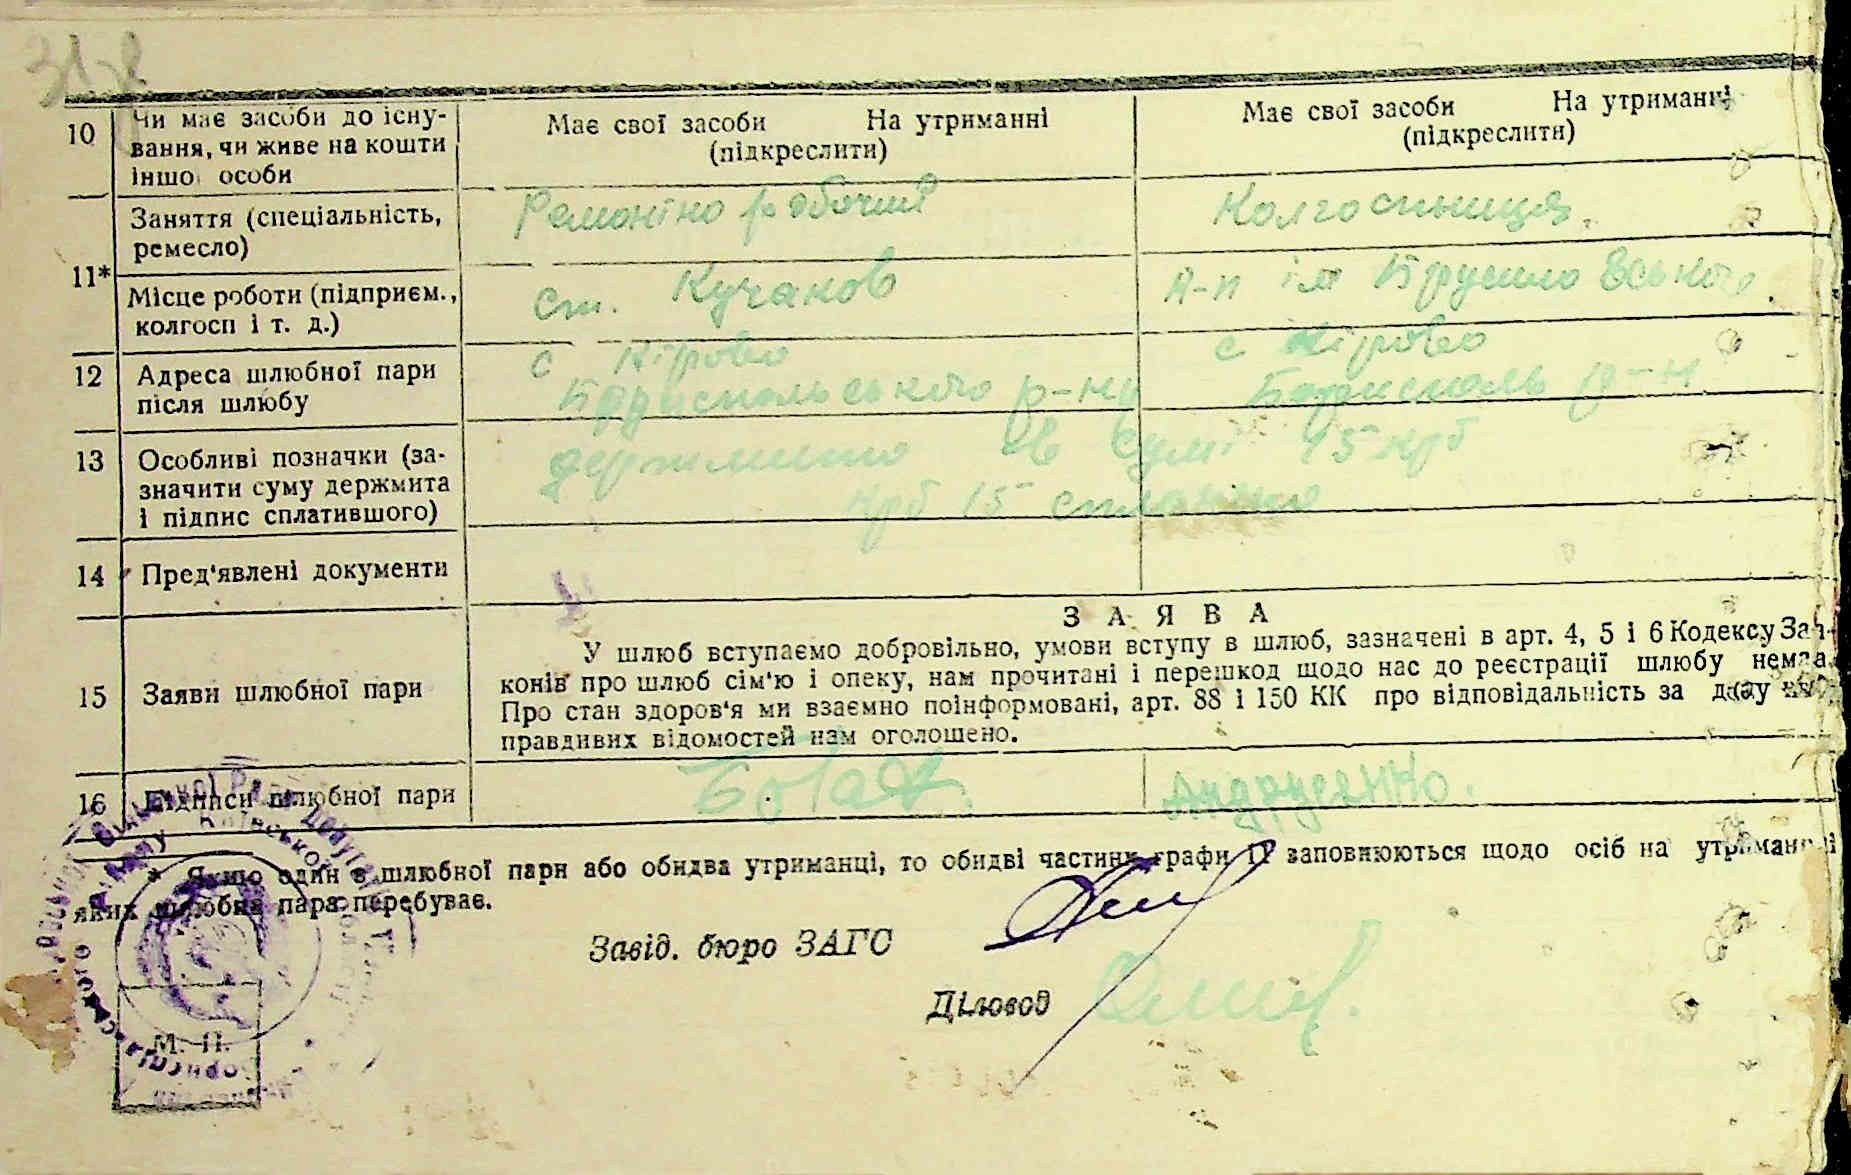 10 Чи має засоби до існу- Має свої засоби На утриманні Має свої засоби На утриманні
вання, чи живе на кошти (підкреслити) (підкреслити)
іншої особи
11* Заняття (спеціальність, Ремонтно робочий Колгоспниця.
ремесло)
Місце роботи (підприєм., ст. Кучаков к-п ім Кірова
колгосп і т. д.)
12 Адреса шлюбної пари с Кірово с Кірово
після шлюбу Бориспольського р-ну Борисполь р-н
13 Особливі позначки (за- держмито в сумі 15 крб
значити суму держмита крб 15 сплатив
і підпис сплатившого)
14 Пред'явлені документи
З А Я В А
15 Заяви шлюбної пари
У шлюб вступаємо добровільно, умови вступу в шлюб, зазначені в арт. 4, 5 і 6 Кодексу За-
конів про шлюб сім'ю і опеку, нам прочитані і перешкод щодо нас до реєстрації шлюбу немає.
Про стан здоров'я ми взаємно поінформовані, арт. 88 і 150 КК про відповідальність за дачу не-
правдивих відомостей нам оголошено.
16 Підписи шлюбної пари Андрусенко.
* Якщо один з шлюбної пари або обидва утриманці, то обидві частини графи 11 заповнюються щодо осіб на утриманні
яких шлюбна пара перебуває.
Завід. бюро ЗАГС
Діловод
М. П.